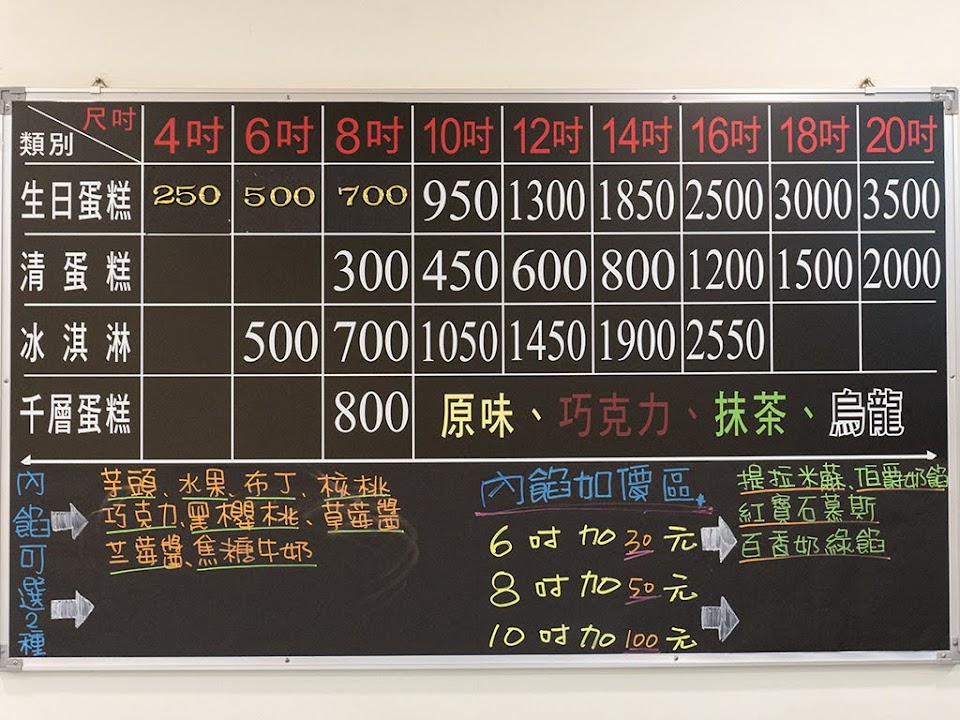 尺吋
類別 4吋 6吋 8吋 10吋 12吋 14吋 16吋 18吋 20吋
生日蛋糕 250 500 700 950 1300 1850 2500 3000 3500
清蛋糕 300 450 600 800 1200 1500 2000
冰淇淋 500 700 1050 1450 1900 2550
千層蛋糕 800 原味、巧克力、抹茶、烏龍
內餡可選2種
芋頭、水果、布丁、核桃
巧克力、黑櫻桃、草莓醬
苎莓醬、焦糖牛奶
內餡加價區
6吋加30元
8吋加50元
10吋加100元
提拉米蘇、伯爵奶餡
紅寶石慕斯
百香奶綠餡